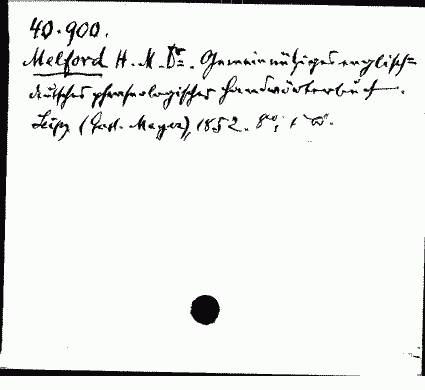 40.900.
Melford H. M. Dr. Gemeinnütziges englisch=
deutsches phraseologisches Handwörterbuch.
Leipz (Gust. Mayer), 1852. 8o; 1